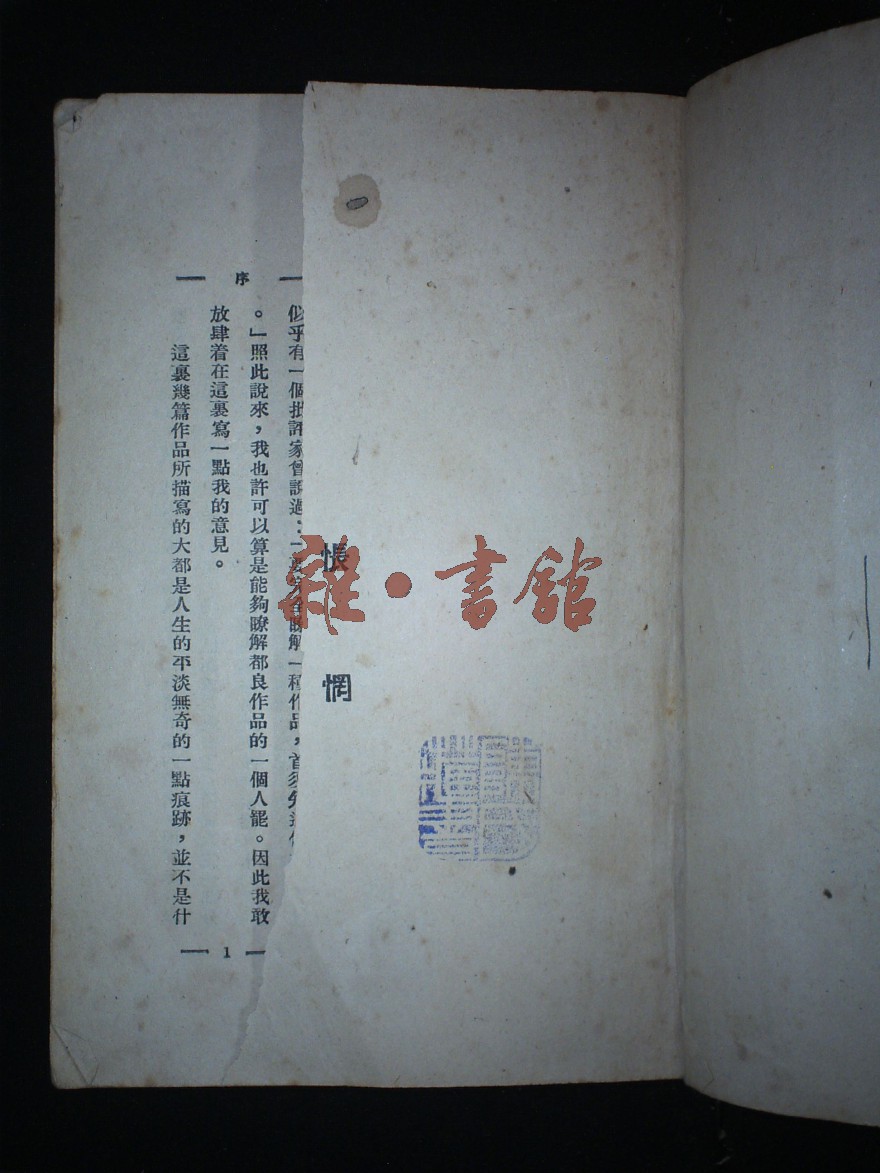 悵惘
雜·書館
序
似乎有一個批評家曾說過：瞭解一種作品，首須先
。」照此說來，我也許可以算是能夠瞭解都良作品的一個人罷。因此我敢
放肆着在這裏寫一點我的意見。
這裏幾篇作品所描寫的大都是人生的平淡無奇的一點痕跡，並不是什
1